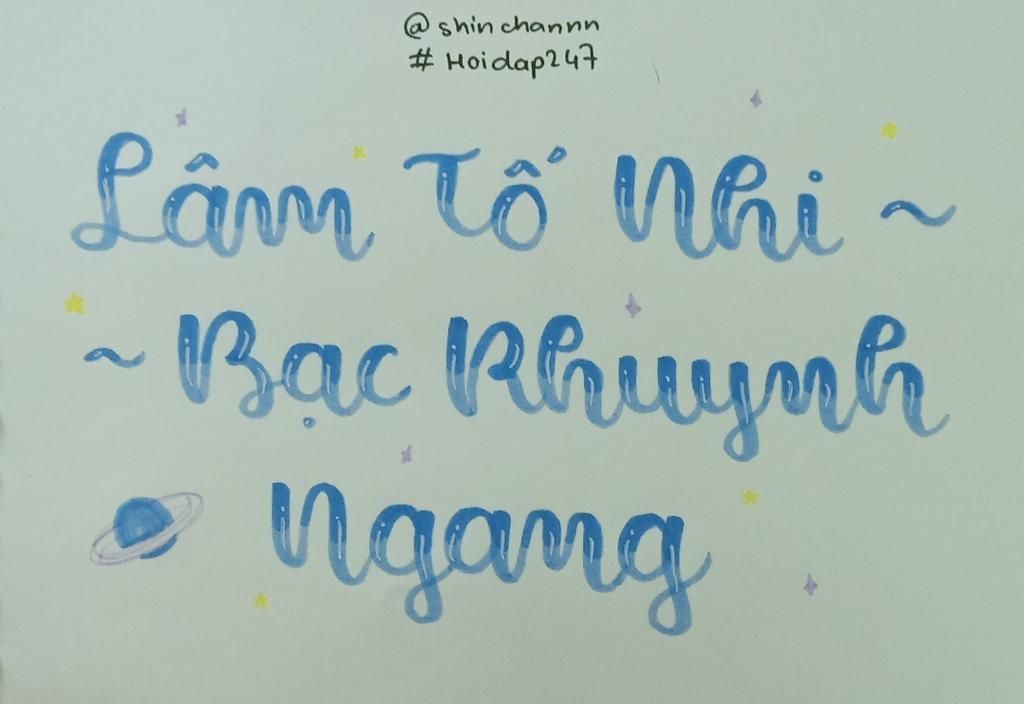 @shinchannn
#Hoidap247
Lâm Tố Nhi ~
~ Bạc Khuynh
Ngang